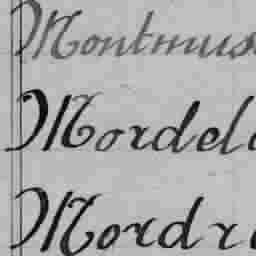 Montmus
Mordel
Mordr